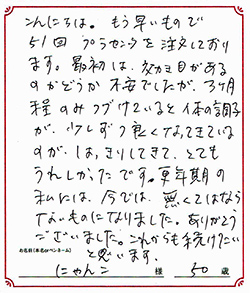 こんにちは。もう早いもので
51回プラセンタを注文しており
ます。最初は、効き目がある
のかどうか不安でしたが、3ヶ月
程のみつづけていると体の調子
が、少しずつ良くなってきている
のが、はっきりしてきて、とても
うれしかったです。更年期の
私には、今では、無くてはなら
ないものになりました。ありがとう
ございました。これからも続けたい
と思います。
お名前(本名orペンネーム)
にゃんこ 様 50 歳